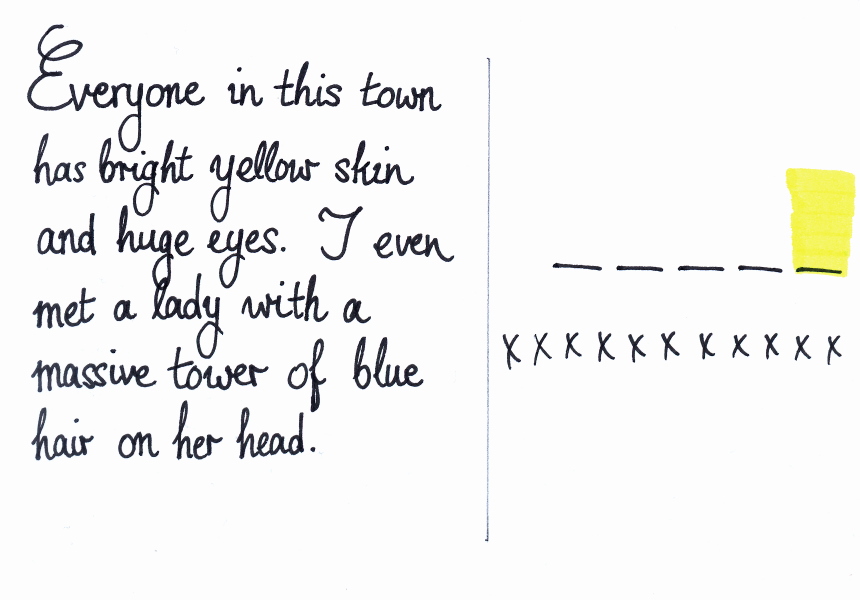 Everyone in this town
has bright yellow skin
and huge eyes. I even
met a lady with a
massive tower of blue
hair on her head.
_ _ _ _ _
x x x x x x x x x x x